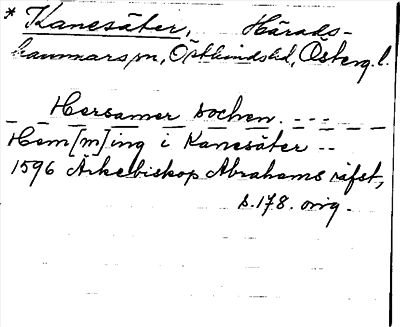 * Kanesäter, Härads-
hammars sn, Östkinds hd, Österg. l.
Hersamer sochen. - - -
Hem[m]ing i Kanesäter --
1596 Ärkebiskop Abrahams räfst,
s. 178. orig.